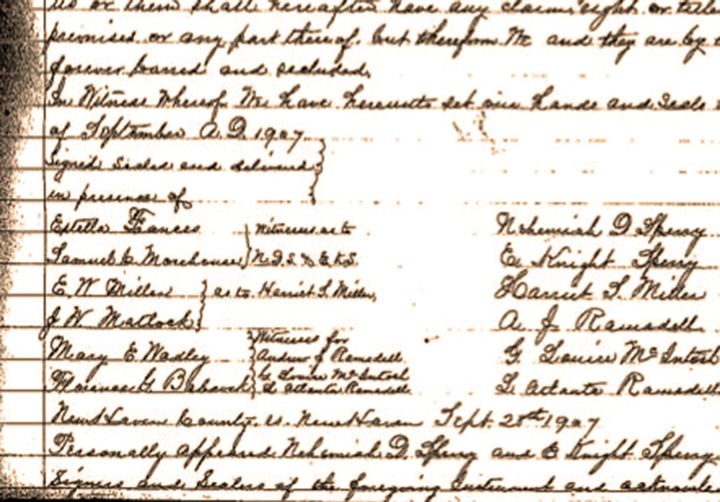 us or them shall hereafter have any claim, right or title
premises or any part thereof, but therefrom We and they are by
forever barred and secluded.
In Witness Whereof We have hereunto set our hands and Seals
of September A.D. 1907
Signed Sealed and delivered
in presence of
Estella Frances Witnesses as to Nehemiah D Sperry
Samuel C. Morehouse N.D.S. & E.K.S. E. Knight Sperry
E. W Miller as to Harriet S. Miller, Harriet S. Miller
J W Matlock A. J. Ramsdell
Mary E Wadley Witnesses for Andrew J Ramsdell G Louise McIntosh
Florence G. Babcock G Louise McIntosh L Atlanta Ramsdell L Atlanta Ramsdell
New Haven County. ss. New Haven Sept. 28th 1907
Personally appeared Nehemiah D. Sperry and E Knight Sperry
Signers and Sealers of the foregoing Instrument and